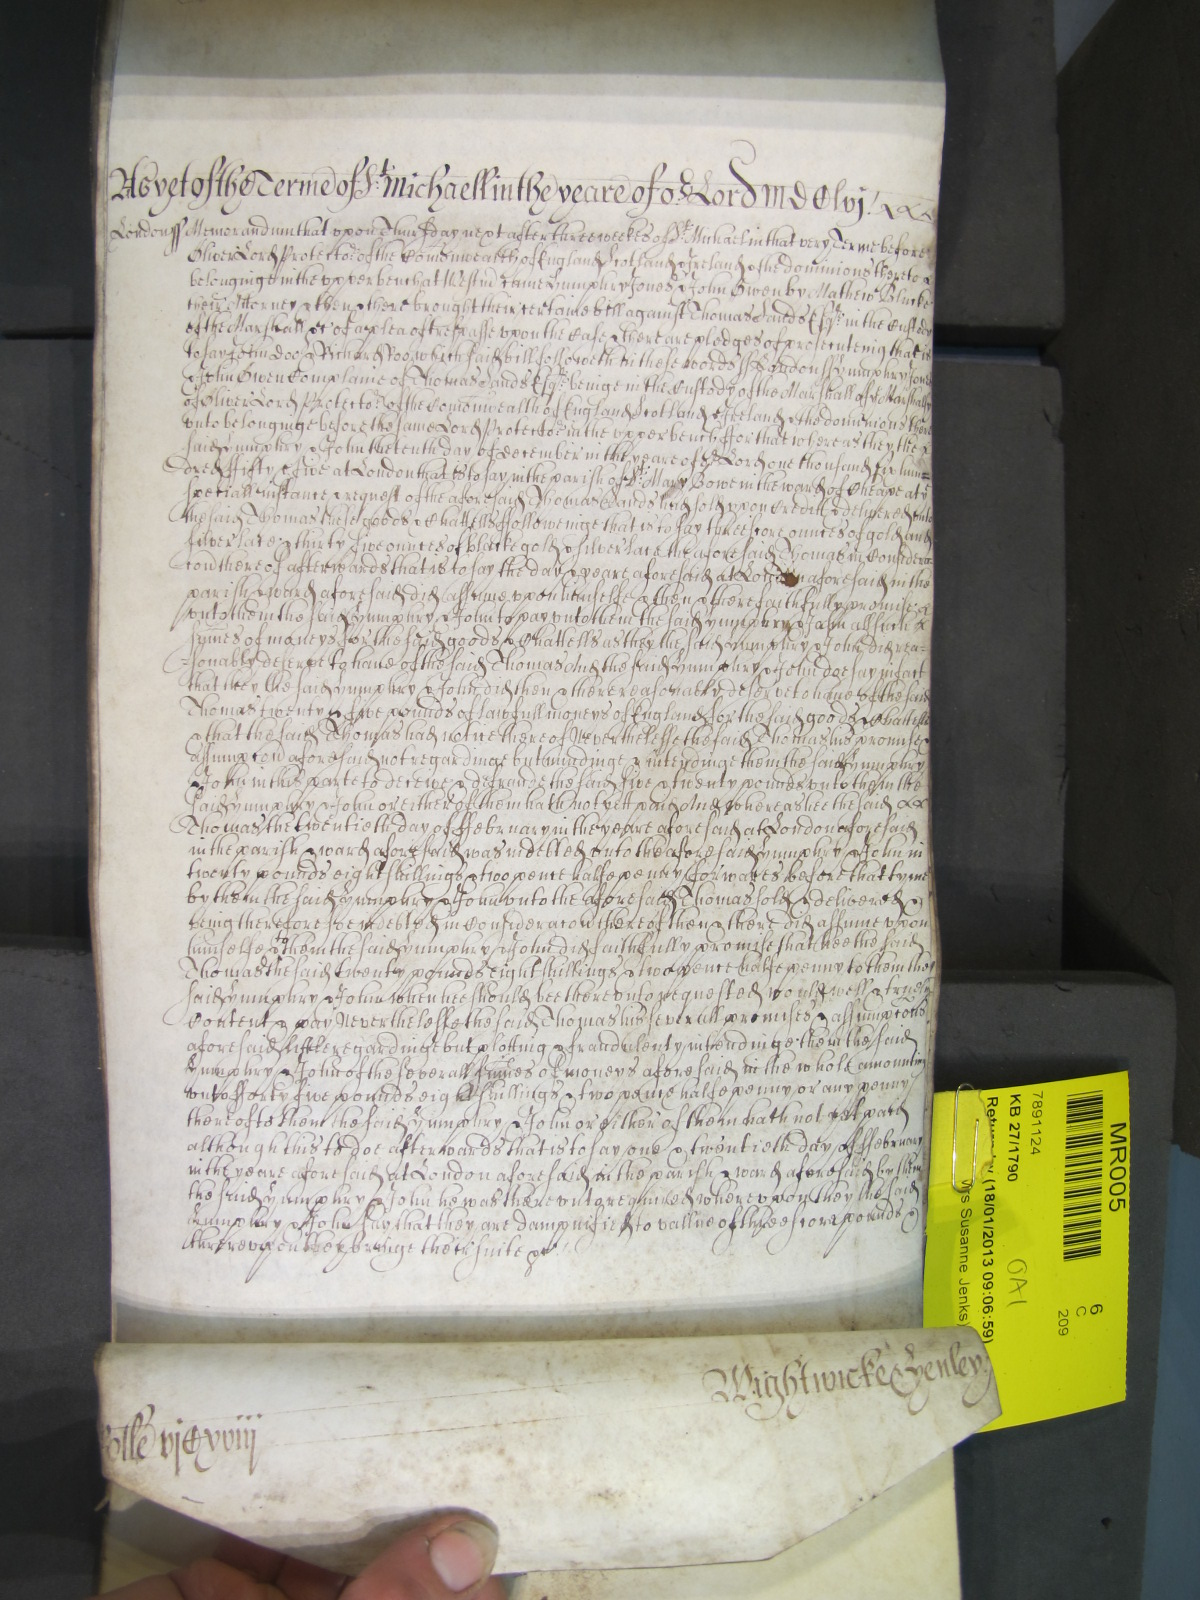 As yet of the Terme of St. Michaell in the yeare of or Lord MDClvj
London ss Memorandum that upon Thursday next after three weekes of St Michael in that very Terme before
Oliver Lord Protector of the Comonwealth of England Scotland & Ireland & the dominions thereto
belonginge in the upper bench at Westm came Humphry Jones & John Owen by Mathew Blucke
their Attorney & then & there brought their certaine bill against Thomas Sands Esqr in the Custody
of the Marshall &c of a plea of trespasse upon the Case & there are pledges of prosecuteing that is
to say John Doo & Richard Roo which said bill followeth in these words ss London ss Humphry Jones
& John Owen Complaine of Thomas Sands Esqr beinge in the Custody of the Marshall of the Marshalsy
of Oliver Lord Protector of the Comonwealth of England Scotland & Ireland & the dominions there
unto belonginge before the same Lord Protector in the upper bench ffor that whereas they the
said Humphry & John the tenth day of December in the yeare of or Lord one thousand six hun=
dred ffifty & five at London that is to say in the parish of St Mary Bowe in the ward of Cheape at the
speciall instance & request of the aforesaid Thomas Sands had sold upon Credit & delivered unto
the said Thomas these goods & Chattells ffollowinge that is to say threescore ounces of gold and
silver lace & thirty five ounces of blacke gold & silver lace the aforesaid Thomas in Considera
con thereof afterwards that is to say the day & yeare aforesaid at London aforesaid in the
parish & ward aforesaid did assume upon himselfe & then & there faithfully promise
unto them the said Humphry & John to pay unto them the said Humphry & John all such
sumes of moneys for the said goods & Chattells as they the said Humphry & John did rea=
sonably deserve to have of the said Thomas And the said Humphry & John doe say in fact
that they the said Humphry & John did then & there reasonably deserve to have of the said
Thomas twenty & five pounds of lawfull moneys of England for the said goods & Chattells
& that the said Thomas had notice thereof Neverthelesse the said Thomas his promise &
assumpcon aforesaid not regardinge but mindinge & intendinge them the said Humphry
& John in this parte to deceive & defraude the said five & twenty pounds unto them the
said Humphry & John or either of them hath not yett paid And whereas hee the said
Thomas the twentieth day of ffebruary in the yeare aforesaid at London aforesaid
in the parish & ward aforesaid was indebted unto the aforesaid Humphry & John in
twenty pounds eight shillings & two pence halfe penny for wares before that tyme
by them the said Humphry & John unto the aforesaid Thomas sold & delivered &
being therefore soe indebted in Consideracon thereof then & there did assume upon
himselfe & to them the said Humphry & John did faithfully promise that hee the said
Thomas the said twenty pounds eight shillings & two pence halfe penny to them they
said Humphry & John when hee should bee thereunto requested would well & truely
Content & pay Neverthelesse the said Thomas his severall promises & assumpcons
aforesaid little regardinge but plotting & fraudulently intendinge them the said
Humphry & John of the severall sumes of moneys aforesaid in the whole amountinge
unto fforty five pounds eight shillings & two pence halfe penny or any penny
thereof to them the said Humphry & John or either of them hath not yet paid
although this to doe afterwards that is to say one & twentieth day of ffebruary
in the yeare aforesaid at London aforesaid in the parish & ward aforesaid by them
the said Humphry & John he was thereunto required whereupon they the said
Humphry & John say that they are dampnified to vallue of threescore pounds &
thereupon they bringe their suite &c
Wightwicke & Henley
Rolle vjCxviij
MR005
7891124
KB 27/1790
(18/01/2013 09:06:59)
Mrs Susanne Jenks
OA1
6
C
209